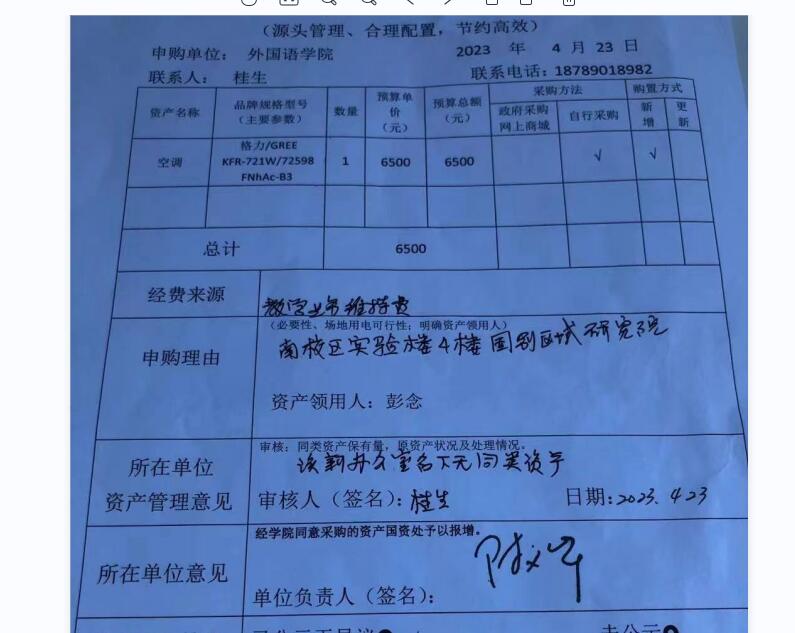 （源头管理、合理配置，节约高效）
申购单位： 外国语学院 2023 年 4 月 23 日
联系人： 桂生 联系电话：18789018982
资产名称 品牌规格型号（主要参数） 数量 预算单价（元） 预算总额（元） 采购方法 购置方式
政府采购网上商城 自行采购 新增 更新
空调 格力/GREE KFR-721W/72598 FNhAc-B3 1 6500 6500 √ √
总计 6500
经费来源 教学业务维持费
（必要性、场地用电可行性；明确资产领用人）
申购理由 南校区实验楼4楼国别区域研究院
资产领用人：彭念
审核：同类资产保有量，原资产状况及处理情况。
所在单位 该新办公室名下无同类资产
资产管理意见 审核人（签名）：桂生 日期：2023.4.23
经学院同意采购的资产国资处予以报增。
所在单位意见
单位负责人（签名）：